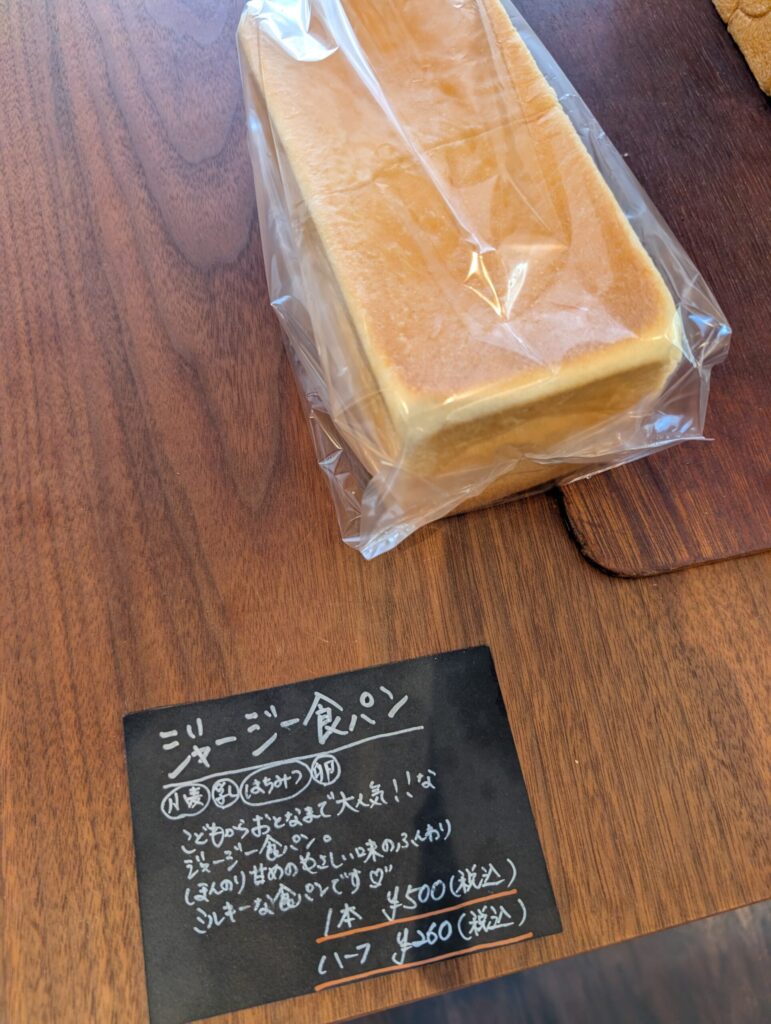 ジャージー食パン
小麦 乳 はちみつ 卵
こどもからおとなまで大人気!!な
ジャージー食パン。
ほんのり甘めのやさしい味のふんわり
ミルキーな食パンです♡
1本 ¥500(税込)
ハーフ ¥260(税込)